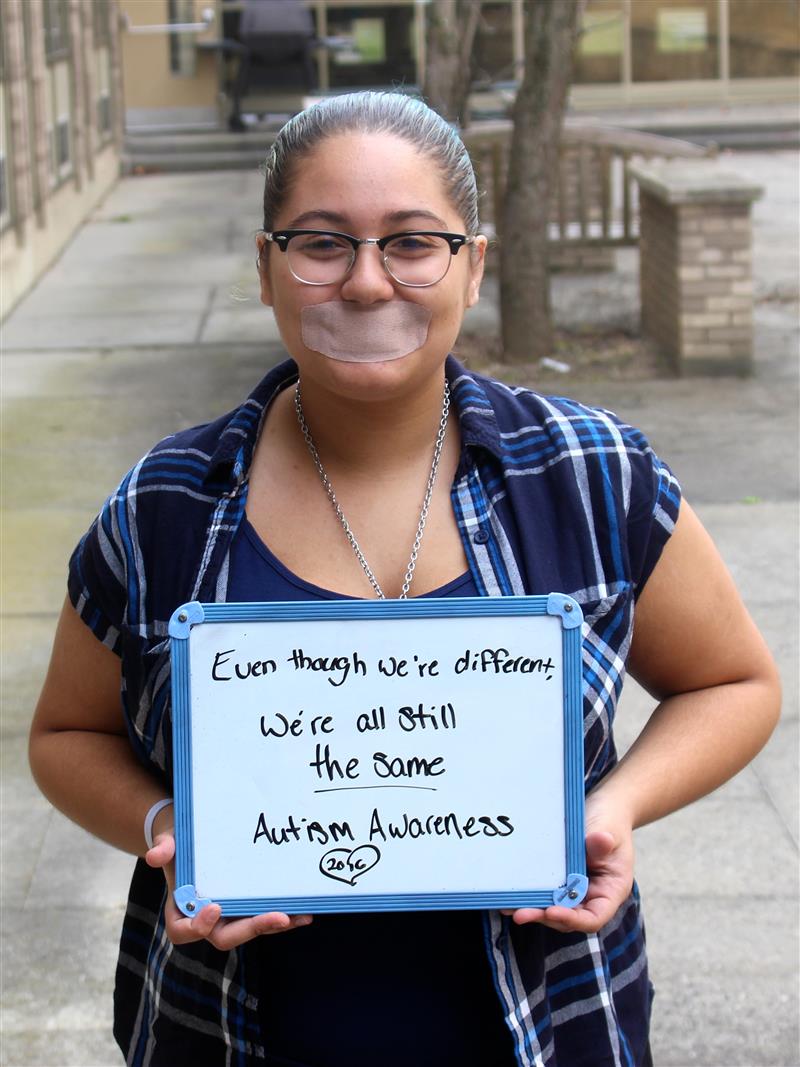 Even though we're different,
We're all still
the same
Autism Awareness
2016